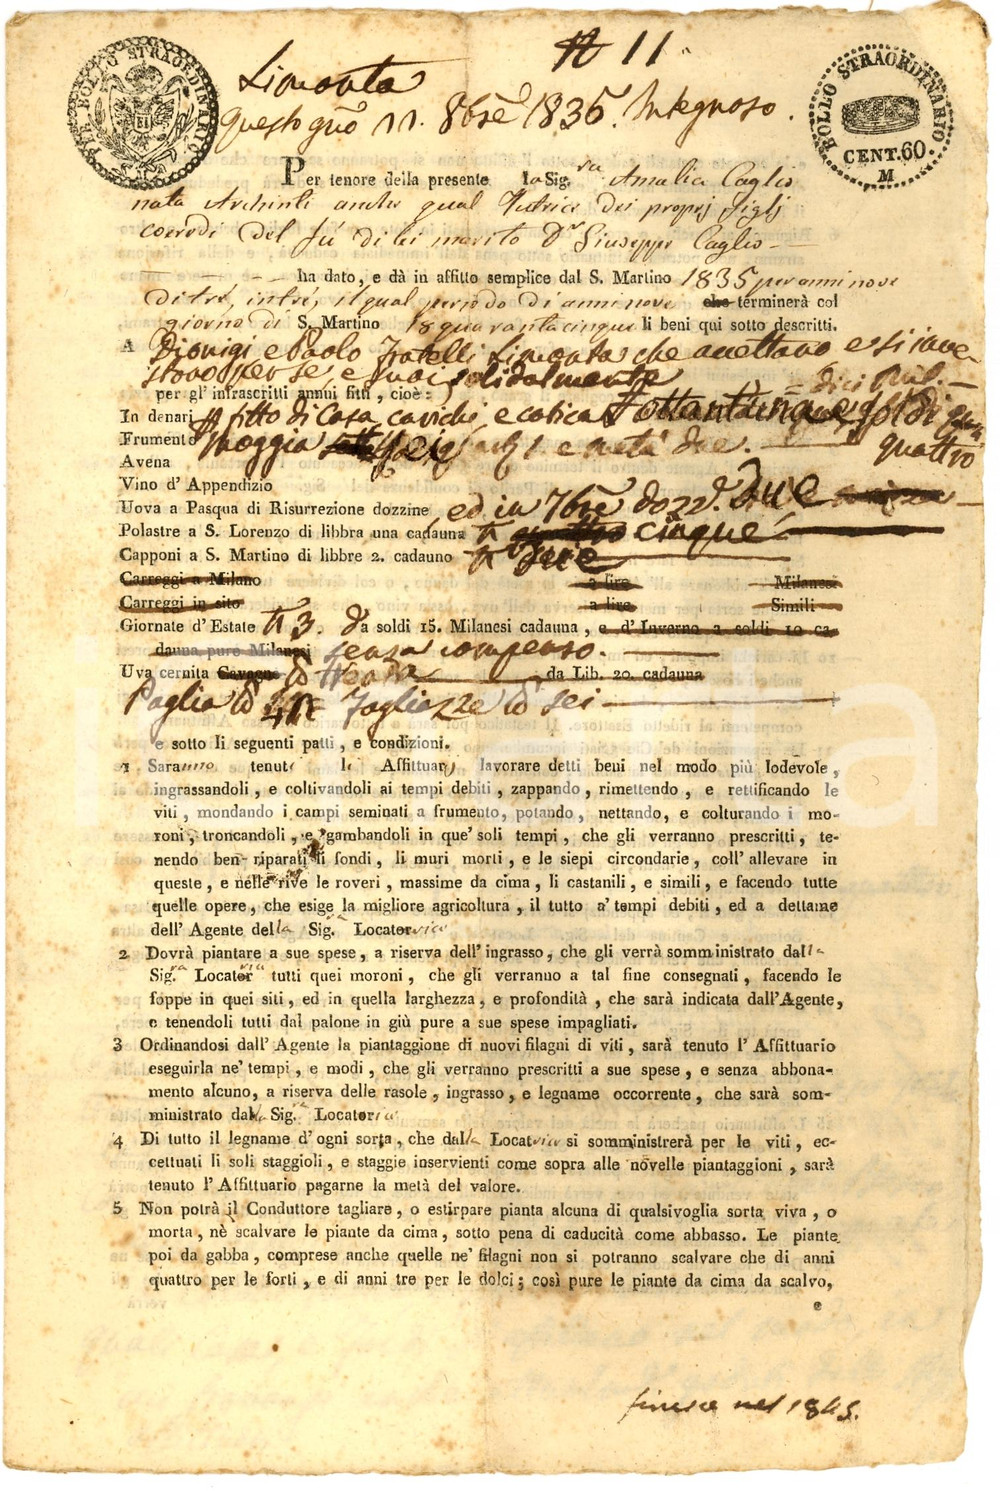 N 11
Limonta
PER BOLLO STRAORDINARIO
BOLLO STRAORDINARIO
CENT. 60
M
Questo gno 11. 8bre 1835. Integnoso.
Per tenore della presente la Sig.ra Amalia Caglio
nata Archinti anche qual Tutrice dei proprj figlj
coeredi del fù di lei marito Dr Giuseppe Caglio
ha dato, e dà in affitto semplice dal S. Martino 1835 per anni nove
di tré, in tré, il qual periodo di anni nove che terminerà col
giorno di S. Martino 18quarantacinque li beni qui sotto descritti.
A Dionigi e Paolo Fratelli Limonta che accettano e si inve-
stono per se, e suoi solidalmente
per gl' infrascritti annui fitti, cioè:
In denari fitto di Casa, carichi e cotica ottantacinque soldi
Frumento Moggia sei e metà due. quattro
Avena
Vino d' Appendizio
Uova a Pasqua di Risurrezione dozzine ed in 7bre dozz.e Due
Polastre a S. Lorenzo di libbra una cadauna N cinque
Capponi a S. Martino di libbre 2. cadauno N Due
Carreggi a Milano a lire Milanesi
Carreggi in sito a lire Simili
Giornate d' Estate N 3. da soldi 15. Milanesi cadauna, e d' Inverno a soldi 10 ca-
dauna pure Milanesi senza compenso.
Uva cernita Cavagne da Lib. 20. cadauna
Paglia sei
e sotto li seguenti patti, e condizioni.
1 Saranno tenuti li Affittuarj lavorare detti beni nel modo più lodevole,
ingrassandoli, e coltivandoli ai tempi debiti, zappando, rimettendo, e rettificando le
viti, mondando i campi seminati a frumento, potando, nettando, e colturando i mo-
roni, troncandoli, e gambandoli in que' soli tempi, che gli verranno prescritti, te-
nendo ben riparati li fondi, li muri morti, e le siepi circondarie, coll' allevare in
queste, e nelle rive le roveri, massime da cima, li castanili, e simili, e facendo tutte
quelle opere, che esige la migliore agricoltura, il tutto a' tempi debiti, ed a dettame
dell' Agente della Sig.ra Locatrice
2 Dovrà piantare a sue spese, a riserva dell' ingrasso, che gli verrà somministrato dalla
Sig.ra Locatrice tutti quei moroni, che gli verranno a tal fine consegnati, facendo le
foppe in quei siti, ed in quella larghezza, e profondità, che sarà indicata dall'Agente,
e tenendoli tutti dal palone in giù pure a sue spese impagliati.
3 Ordinandosi dall' Agente la piantaggione di nuovi filagni di viti, sarà tenuto l' Affittuario
eseguirla ne' tempi, e modi, che gli verranno prescritti a sue spese, e senza abbona-
mento alcuno, a riserva delle rasole, ingrasso, e legname occorrente, che sarà som-
ministrato dalla Sig.ra Locatrice
4 Di tutto il legname d' ogni sorta, che dalla Locatrice si somministrerà per le viti, ec-
cettuati li soli staggioli, e staggie inservienti come sopra alle novelle piantaggioni, sarà
tenuto l' Affittuario pagarne la metà del valore.
5 Non potrà il Conduttore tagliare, o estirpare pianta alcuna di qualsivoglia sorta viva, o
morta, nè scalvare le piante da cima, sotto pena di caducità come abbasso. Le piante
poi da gabba, comprese anche quelle ne' filagni non si potranno scalvare che di anni
quattro per le forti, e di anni tre per le dolci; così pure le piante da cima da scalvo,
e
finisce nel 1845.